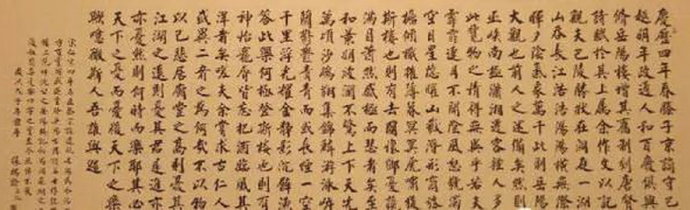 慶曆四年春滕子京謫守巴
越明年政通人和百廢俱興
脩岳陽樓增其舊制刻唐賢
詩賦於其上屬余作文以記
觀夫巴陵勝狀在洞庭一湖
山吞長江浩浩湯湯橫無際
暉夕陰氣象萬千此則岳陽
大觀也前人之述備矣然則
巫峽南極瀟湘遷客騷人多
此覽物之情得無異乎若夫
霏霏連月不開陰風怒號濁
空日星隱曜山岳潛形商旅
檣傾楫摧薄暮冥冥虎嘯猿
斯樓也則有去國懷鄉憂讒
滿目蕭然感極而悲者矣至
和景明波瀾不驚上下天光
萬頃沙鷗翔集錦鱗游泳岸
蘭郁郁青青而或長煙一空
千里浮光耀金靜影沉璧漁
答此樂何極登斯樓也則有
神怡寵辱皆忘把酒臨風其
洋者矣嗟夫余嘗求古仁人
或異二者之為何哉不以物
以己悲居廟堂之高則憂其
江湖之遠則憂其君是進亦
亦憂然則何時而樂耶其必
天下之憂而憂後天下之樂
歟噫微斯人吾誰與歸